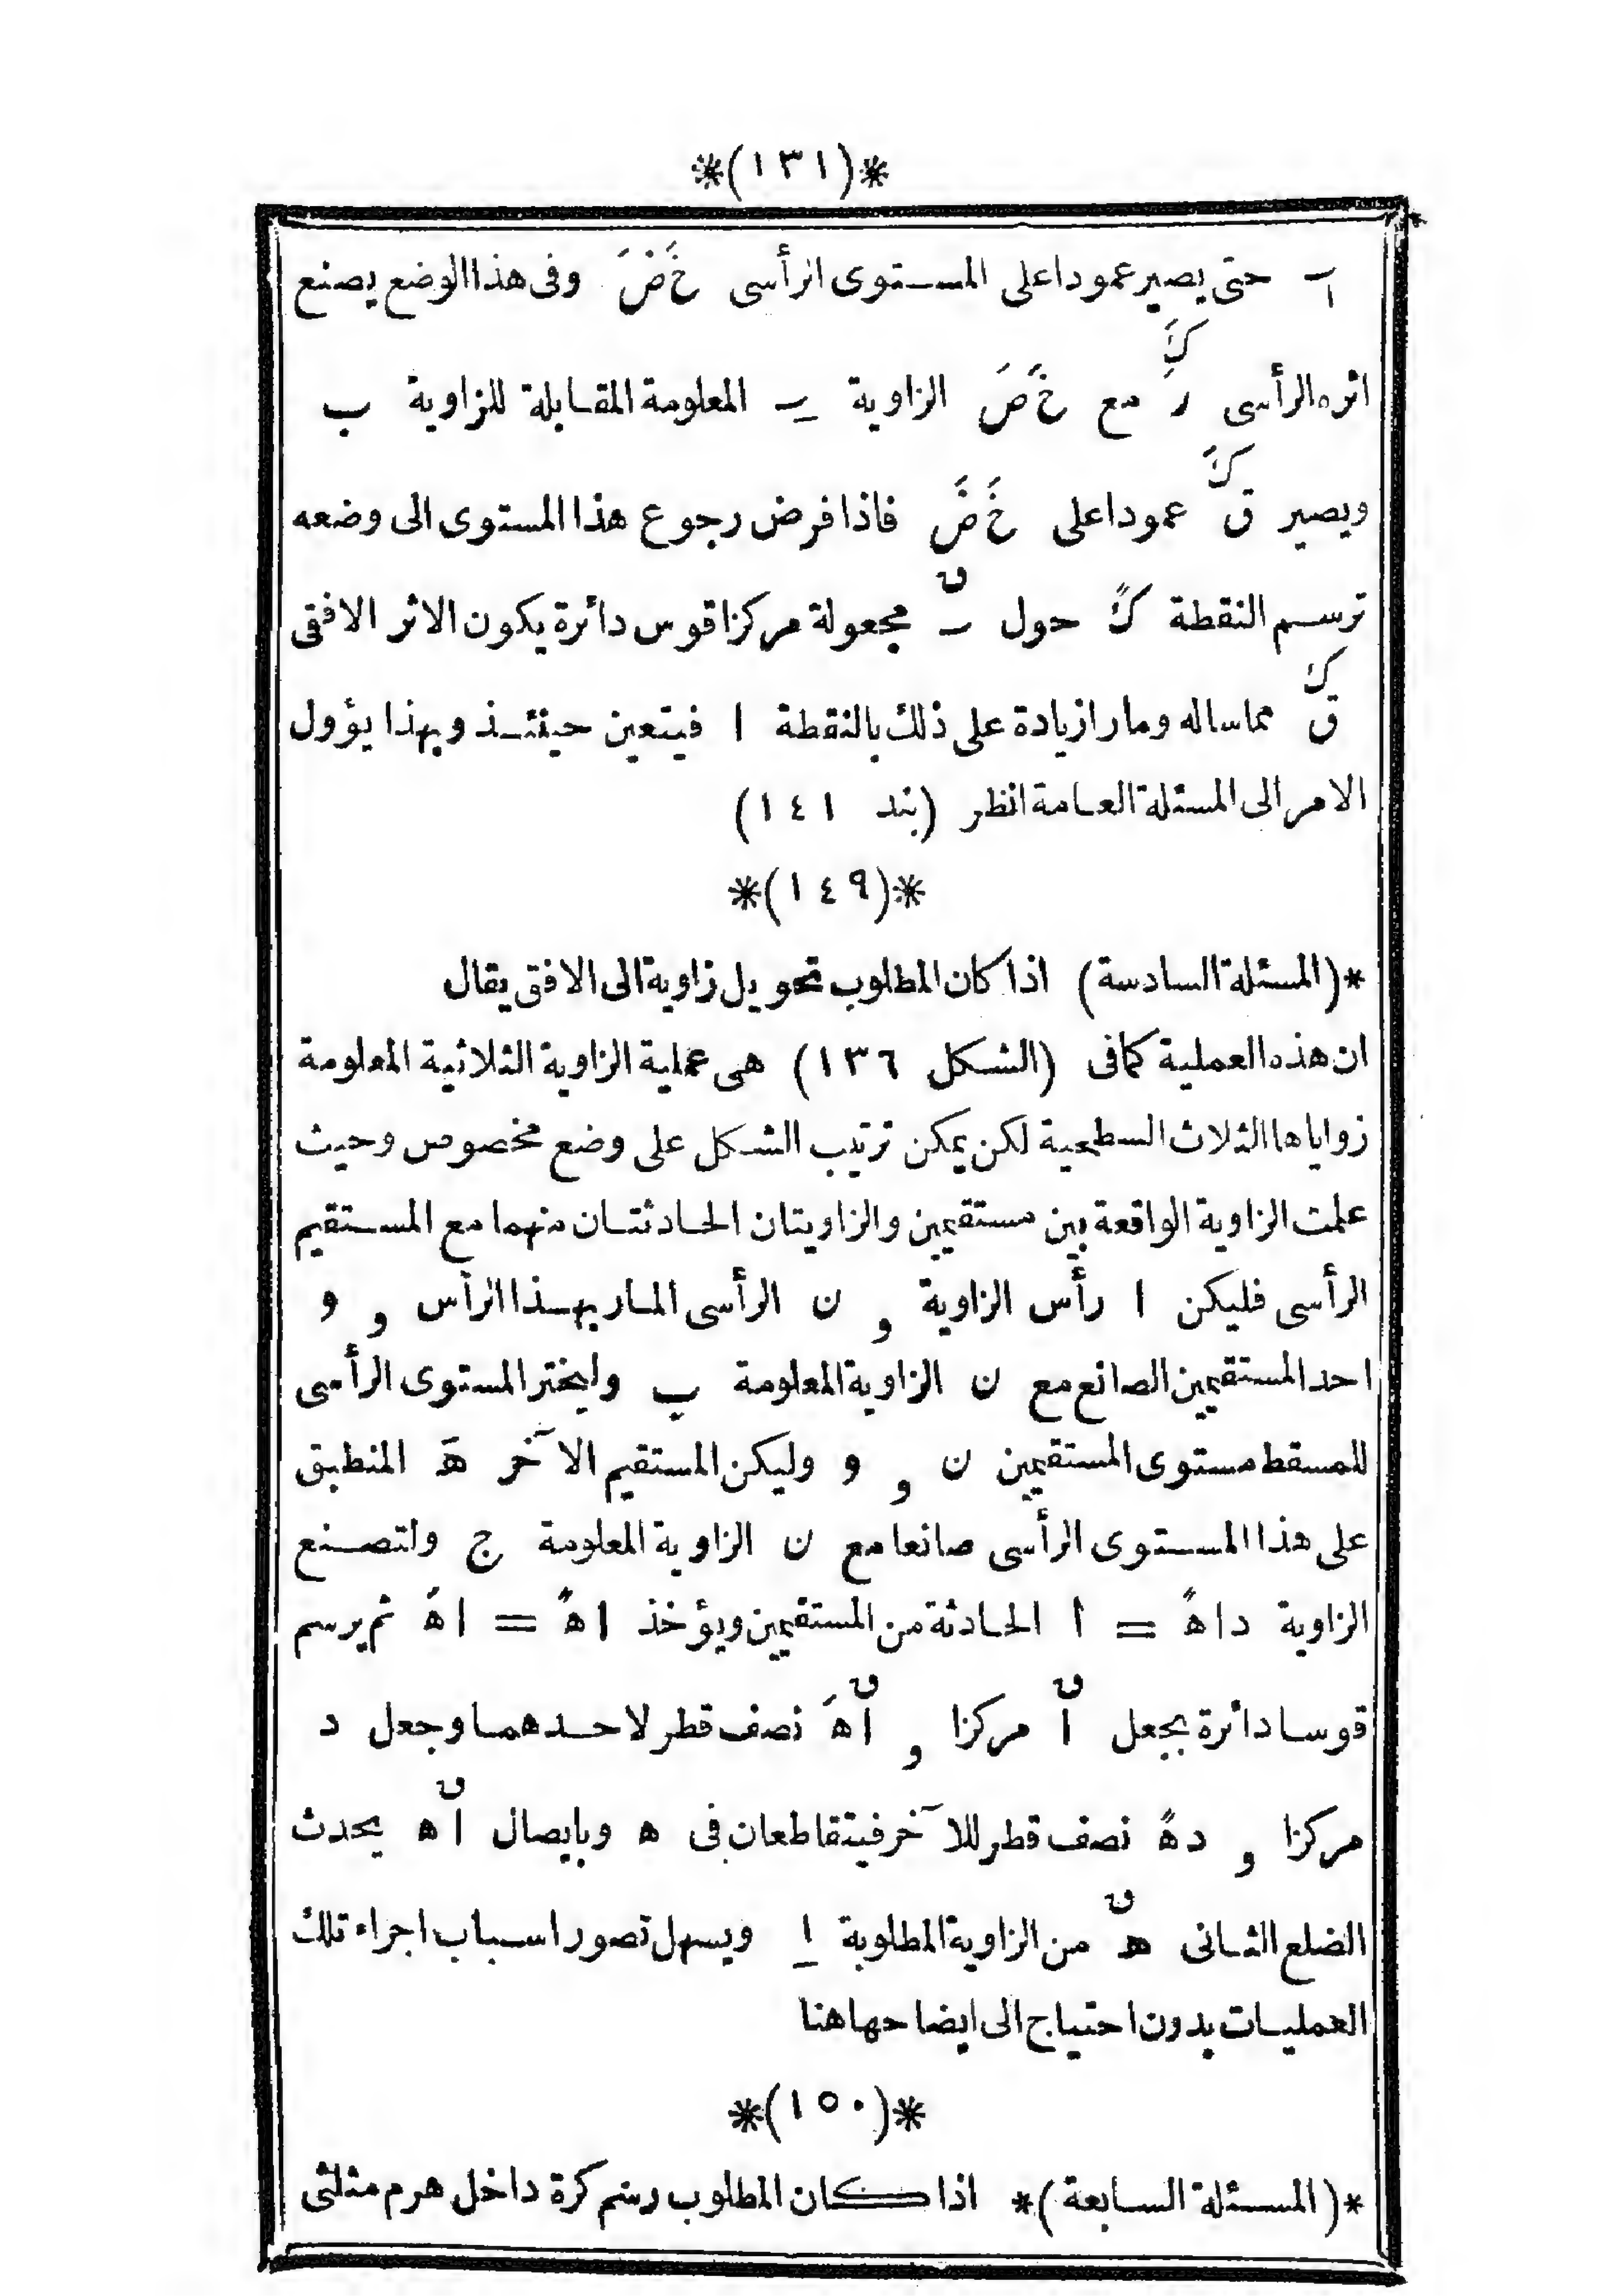 *(١٣١)*
حتى يصير عمودا على المستوى الرأسى خَ ضَ وفى هذا الوضع يصنع
اثره الرأسى رَ مع خَ صَ الزاوية المعلومة المقابلة للزاوية ب
ويصير ق عمودا على خَ ضَ فاذا فرض رجوع هذا المستوى الى وضعه
ترسم النقطة حول مجعولة مركزا قوس دائرة يكون الاثر الافقى
ق مماساله ومارا زيادة على ذلك بالنقطة ا فيتعين حينئذ وبهذا يؤول
الامر الى المسئلة العامة انظر (بند ١٤١)
*(١٤٩)*
*(المسئلة السادسة) اذا كان المطلوب تحويل زاوية الى الافق يقال
ان هذه العملية كمافى (الشكل ١٣٦) هى عملية الزاوية الثلاثية المعلومة
زواياها الثلاث السطحية لكن يمكن ترتيب الشكل على وضع مخصوص وحيث
علمت الزاوية الواقعة بين مستقيمين والزاويتان الحادثتان منهما مع المستقيم
الرأسى فليكن ا رأس الزاوية و ن الرأسى المار بهذا الرأس و و
احد المستقيمين الصانع مع ن الزاوية المعلومة ب وليختر المستوى الرأسى
للمسقط مستوى المستقيمين ن و و وليكن المستقيم الآخر هَ المنطبق
على هذا المستوى الرأسى صانعا مع ن الزاوية المعلومة ج ولتصنع
الزاوية د ا هً = أ الحادثة من المستقيمين ويؤخذ ا هً = ا هَ ثم يرسم
قوسا دائرة بجعل آ مركزا و آ هَ نصف قطر لاحدهما وجعل د
مركزا و د هً نصف قطر للآخر فيتقاطعان فى ه وبايصال آ ه يحدث
الضلع الثانى ه من الزاوية المطلوبة ا ويسهل تصور اسباب اجراء تلك
العمليات بدون احتياج الى ايضاحها هنا
*(١٥٠)*
*(المسئلة السابعة)* اذا كان المطلوب رسم كرة داخل هرم مثلثى